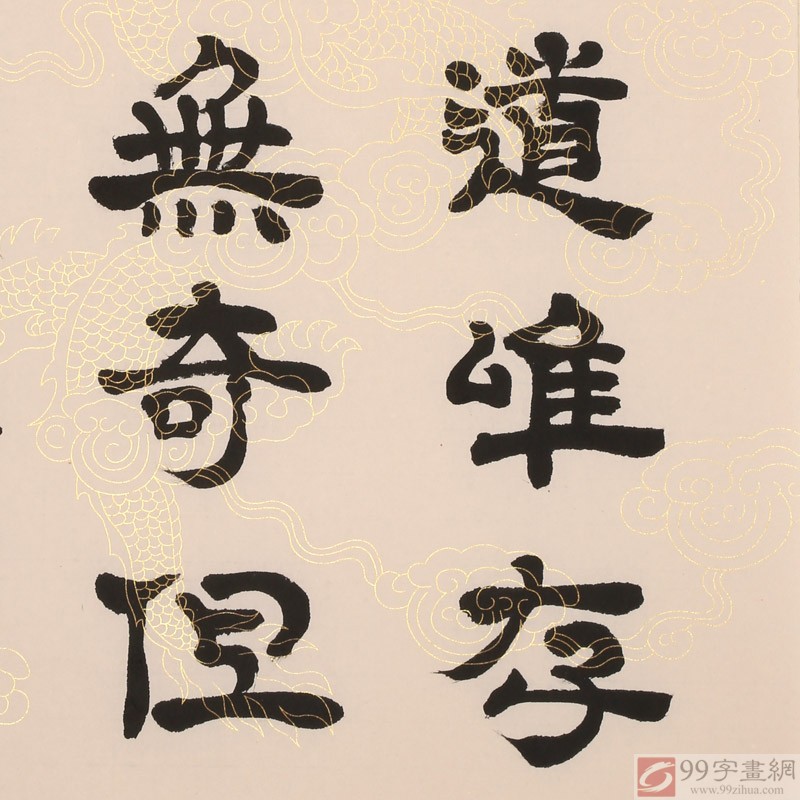 道準存
無奇
99字畫網
www.99zihua.com